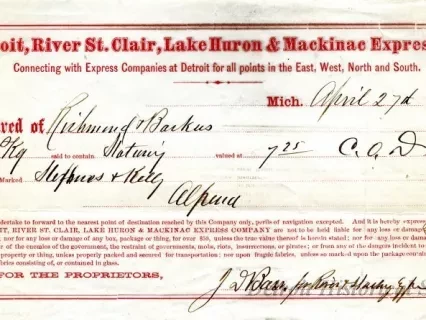 oit, River St. Clair, Lake Huron & Mackinac Expres
Connecting with Express Companies at Detroit for all points in the East, West, North and South.
Mich. April 27th
red of Richmond & Backus
Pkg said to contain valued at 7.25 C.O.D
Marked & Kelly
Alpena
ndertake to forward to the nearest point of destination reached by this Company only, perils of navigation excepted. And it is hereby expres
IT, RIVER ST. CLAIR, LAKE HURON & MACKINAC EXPRESS COMPANY are not to be held liable for any loss or damage
nor for any loss or damage of any box, package or thing, for over $50, unless the true value thereof is herein stated; nor for any loss or damag
of the enemies of the government, the restraint of governments, mobs, riots, insurrections, or pirates; or from any of the dangers incident to
property or thing, unless properly packed and secured for transportation; nor upon fragile fabrics, unless so marked upon the package contain
brics consisting of, or contained in glass.
FOR THE PROPRIETORS,
J D for